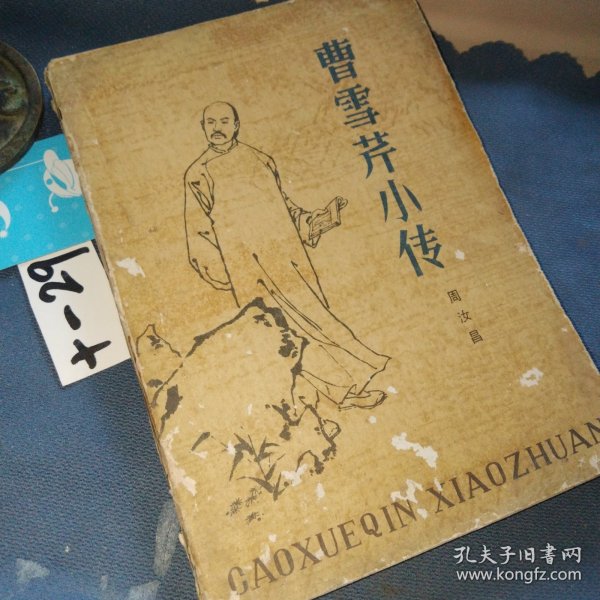 曹雪芹小传
周汝昌
CAOXUEQIN XIAOZHUAN
孔夫子旧书网
www.kongfz.com